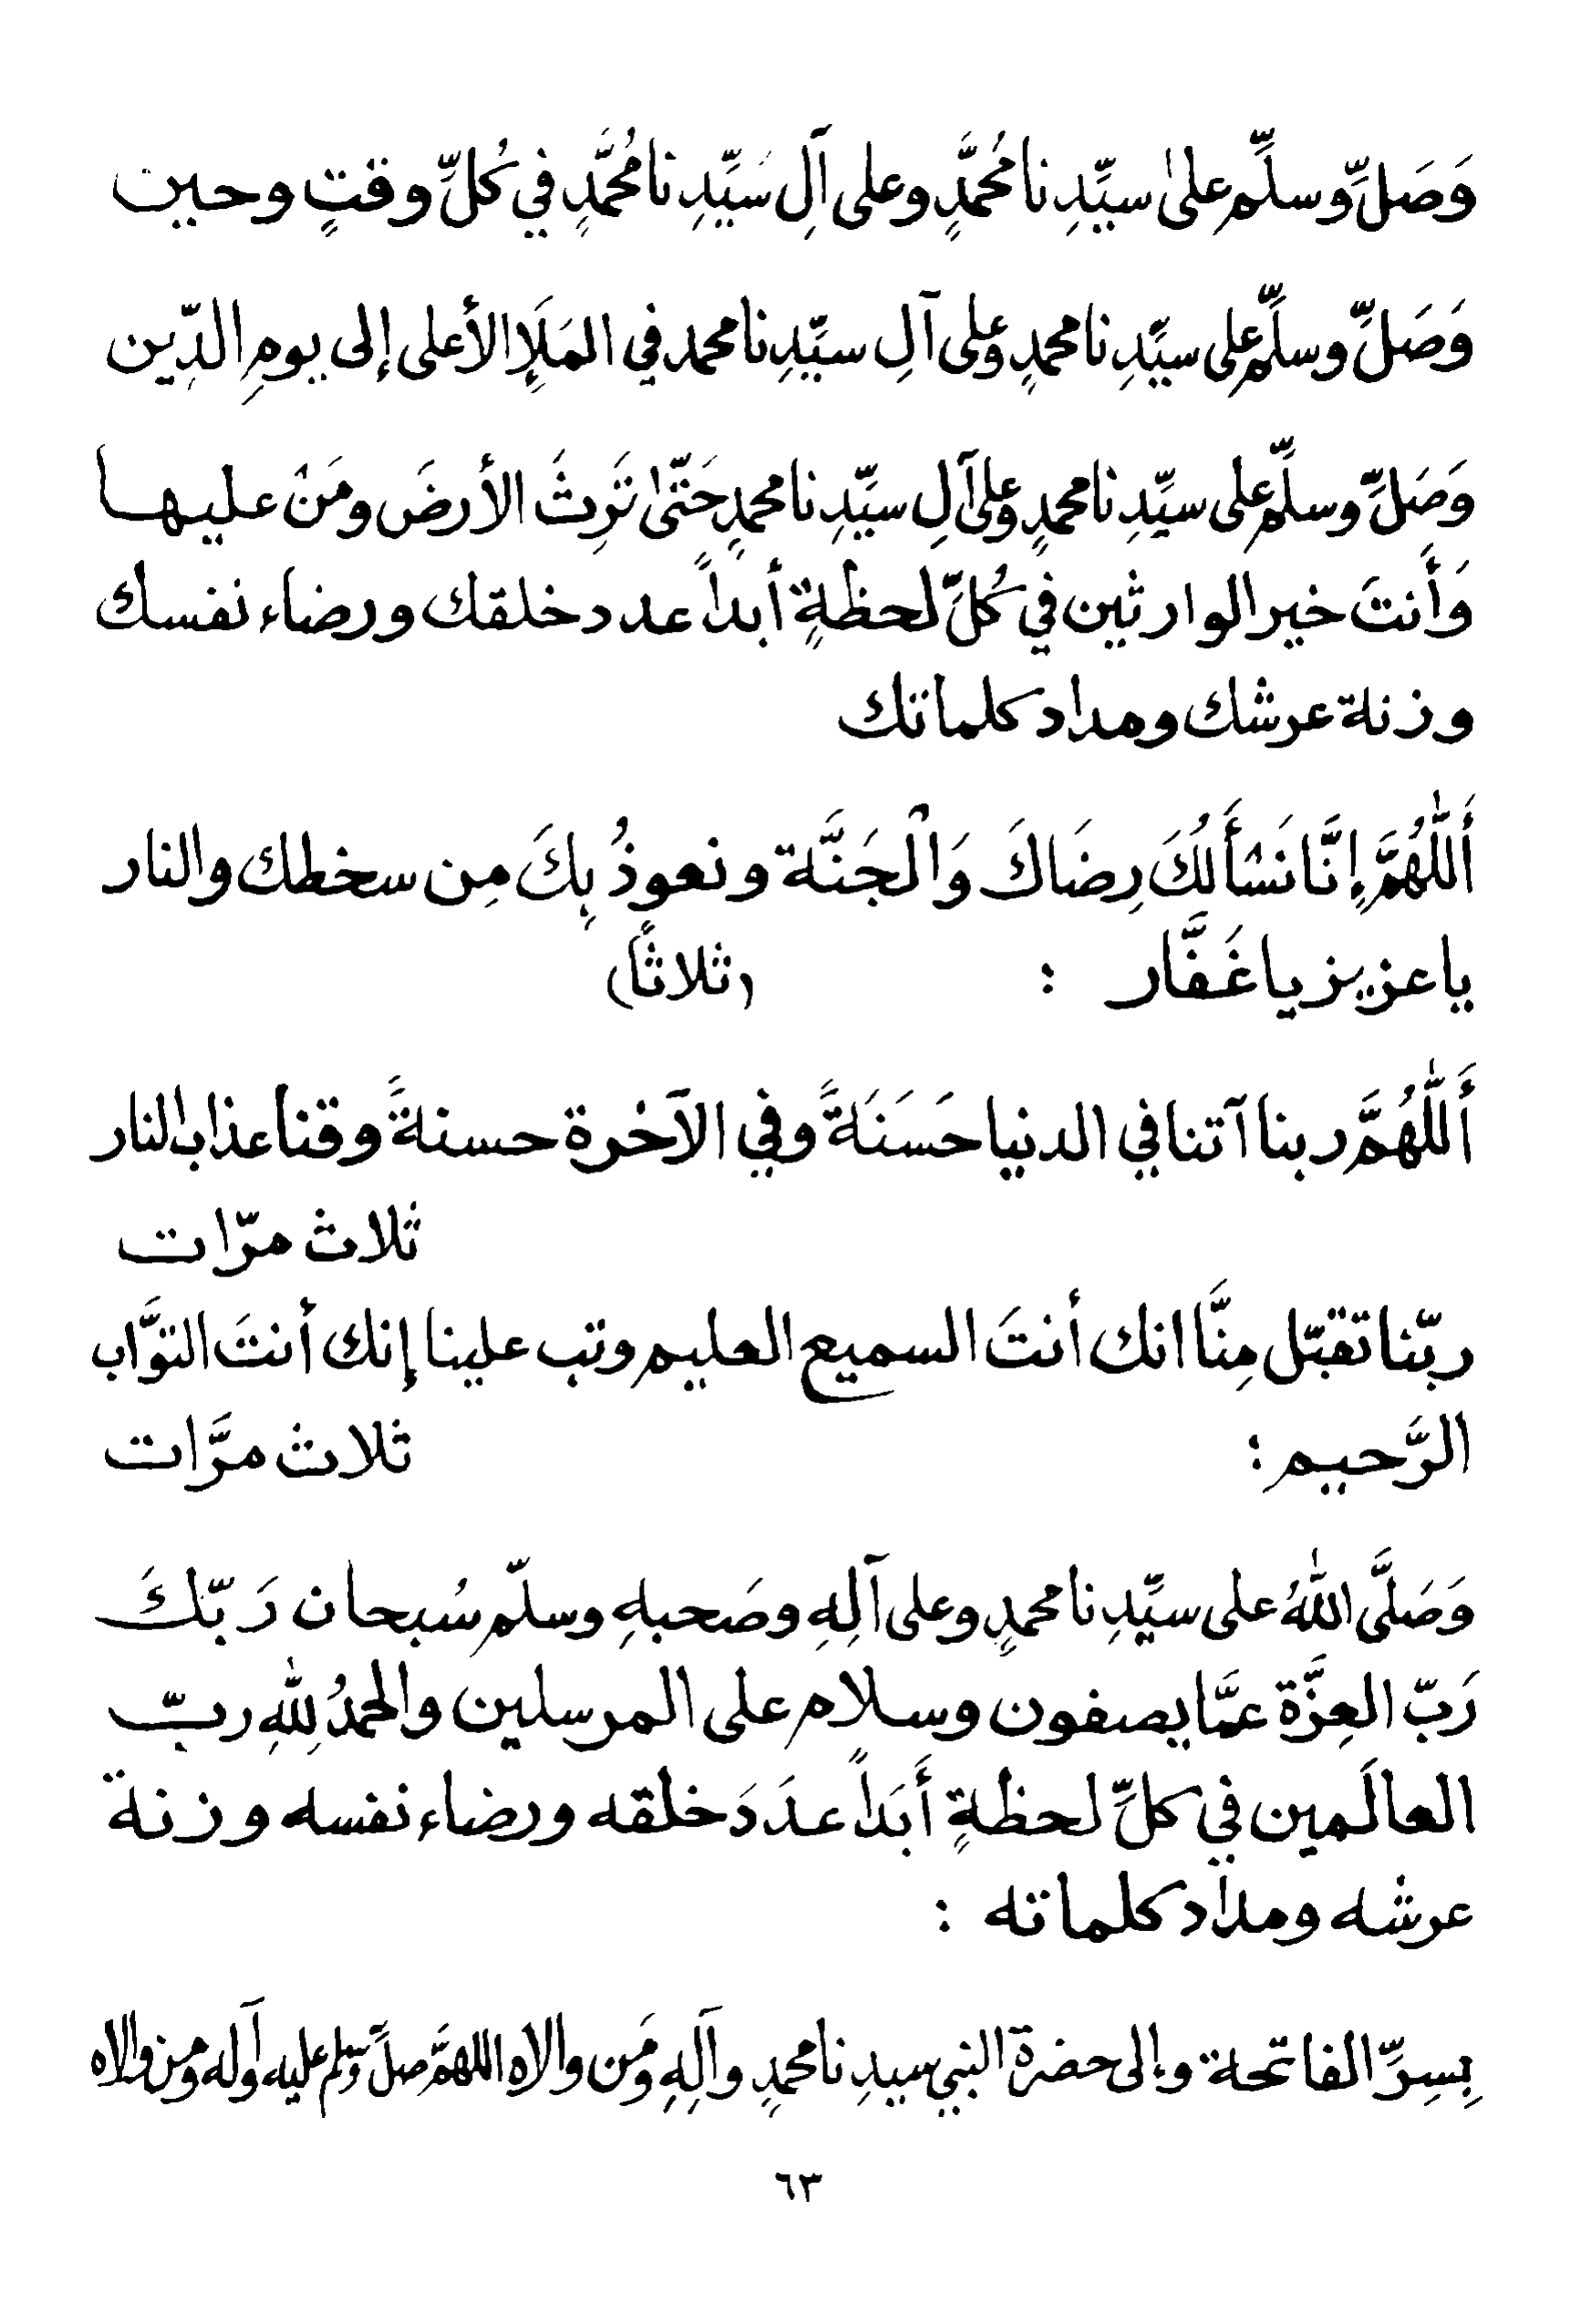 وَصَلِّ وسلِّم على سيِّدِنا مُحمَّدٍ وعلى آلِ سَيِّدِنا مُحَمَّدٍ في كُلِّ وقتٍ وحين
وَصَلِّ وسلِّم على سيِّدِنا محمدٍ وعلى آلِ سيِّدِنا محمد في الملَإِ الأعلى إلى يومِ الدِّين
وَصَلِّ وسلِّم على سيِّدِنا محمدٍ وعلى آلِ سيِّدِنا محمدٍ حَتّىٰ تَرِثَ الأرضَ ومَنْ عليها
وَأَنتَ خير الوارثين في كُلِّ لحظةٍ أبداً عدد خلقك ورضاء نفسك
وزنة عرشك ومداد كلماتك
أَللّٰهُمَّ إِنَّا نَسْأَلُكَ رِضَاكَ وَالْجَنَّة ونعوذُ بِكَ مِن سخطك والنار
يا عزيز يا غَفَّار : (ثلاثاً)
أَللّٰهُمَّ ربنا آتنا في الدنيا حَسَنَةً وفي الآخرة حسنةً وقنا عذاب النار
ثلاث مرّات
ربّنا تقبّل مِنَّا انك أنتَ السميع العليم وتب علينا إنك أنتَ التوَّاب
الرَّحيم : ثلاث مرَّات
وَصَلَّى اللّٰهُ على سيِّدِنا محمدٍ وعلى آلِهِ وصَحبهِ وسلّم سُبحان رَبّكَ
رَبّ العِزَّة عمَّا يصفون وسلام على المرسلين والحمدُ لِلّٰهِ ربّ
العالَمين في كلِّ لحظةٍ أَبَداً عدَدَ خلقه ورضاء نفسه وزنة
عرشه ومداد كلماته :
بِسِرِّ الفاتحة وإلى حضرة النبي سيدِنا محمدٍ وآلِهِ ومَن والاه اللهمَّ صلِّ وسلم عليه وآله ومن والاه
٦٣